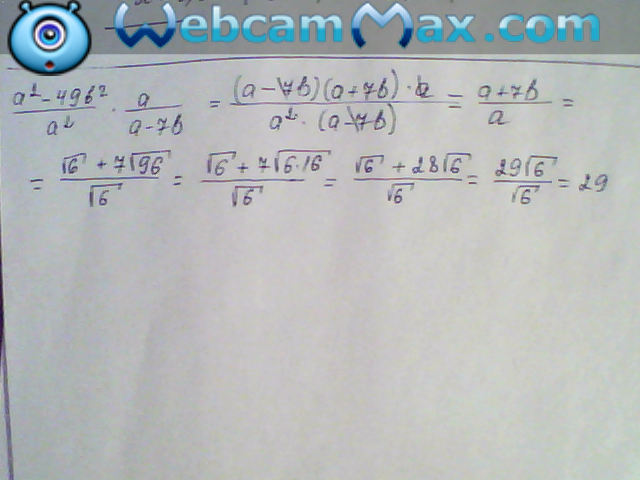 WebcamMax.com
(a² - 49b²)/a² · a/(a - 7b) = ((a - 7b)(a + 7b) · a)/(a² · (a - 7b)) = (a + 7b)/a =
= (√6 + 7√96)/√6 = (√6 + 7√(6·16))/√6 = (√6 + 28√6)/√6 = 29√6/√6 = 29